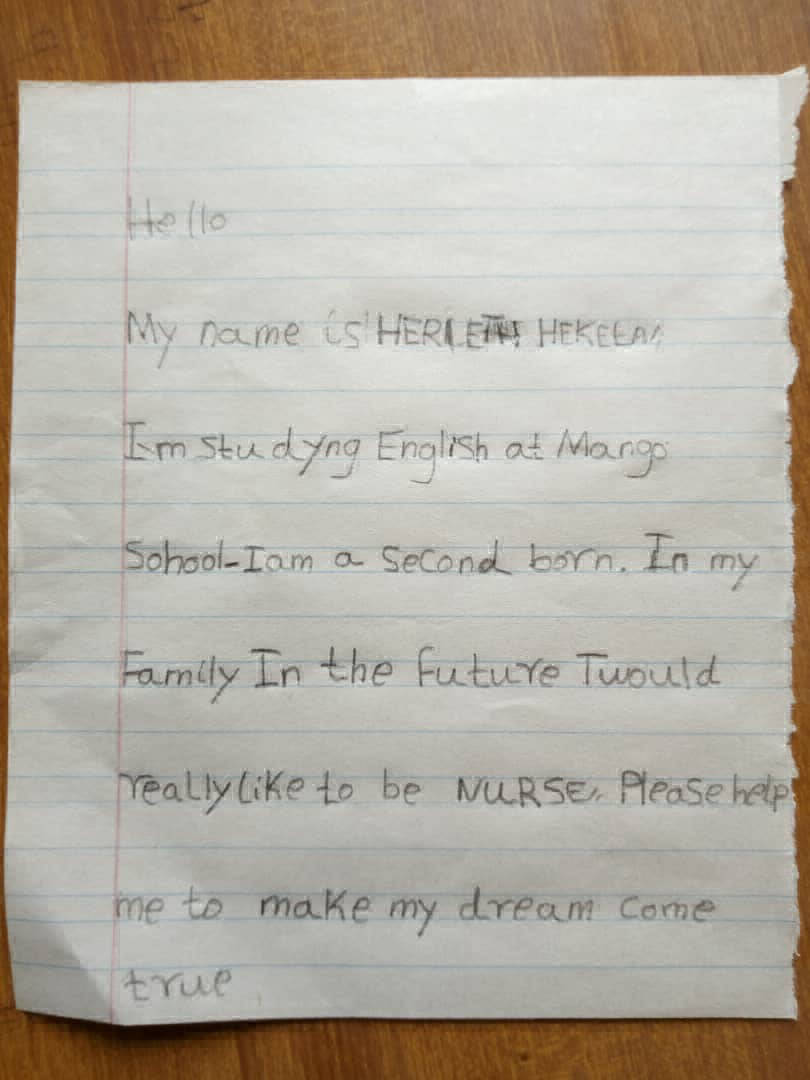 Hello
My name is HERIETH HEKELA
I-m studyng English at Mango
School-I am a second born. In my
Family In the future I would
really like to be NURSE. Please help
me to make my dream come
true